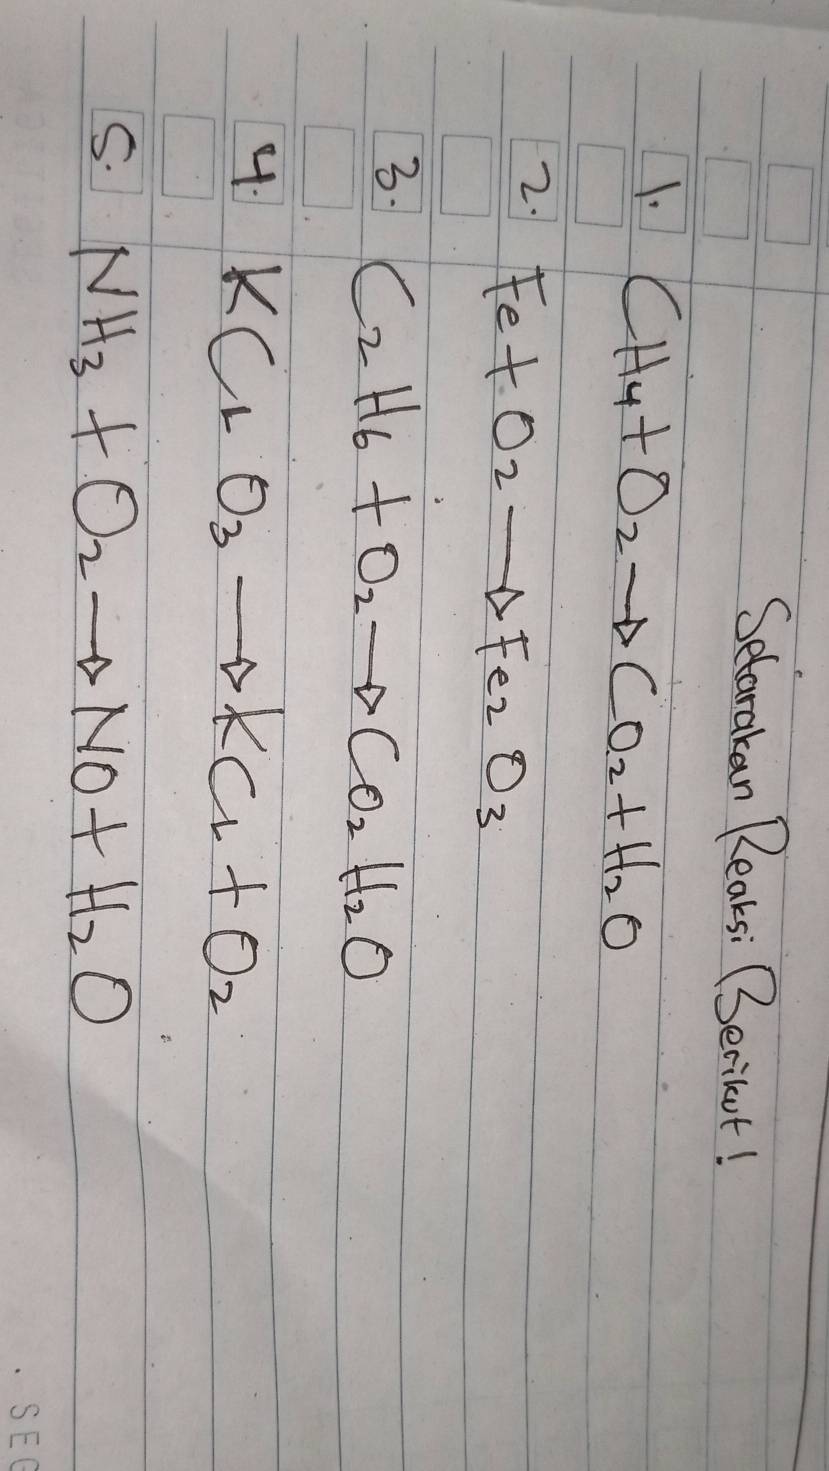 Setarakan Reaksi Berikut!
1. CH4 + O2 → CO2 + H2O
2. Fe + O2 → Fe2O3
3. C2H6 + O2 → CO2 H2O
4. KClO3 → KCl + O2
5. NH3 + O2 → NO + H2O